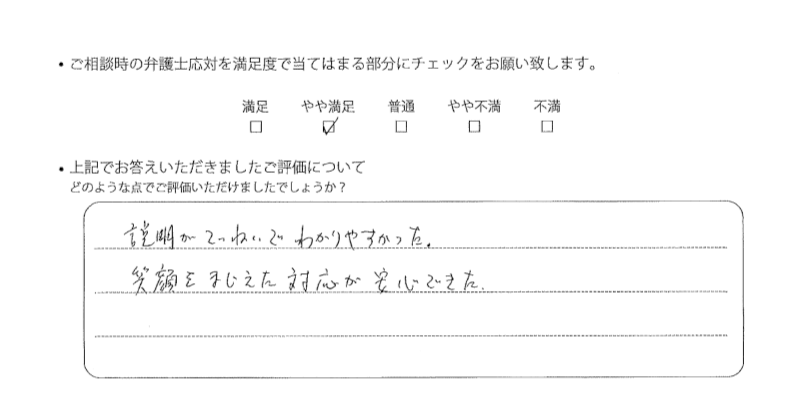 • ご相談時の弁護士応対を満足度で当てはまる部分にチェックをお願い致します。
満足 やや満足 普通 やや不満 不満
□ ☑ □ □ □
• 上記でお答えいただきましたご評価について
どのような点でご評価いただけましたでしょうか？
説明がていねいでわかりやすかった。
笑顔をまじえた対応が安心できた。